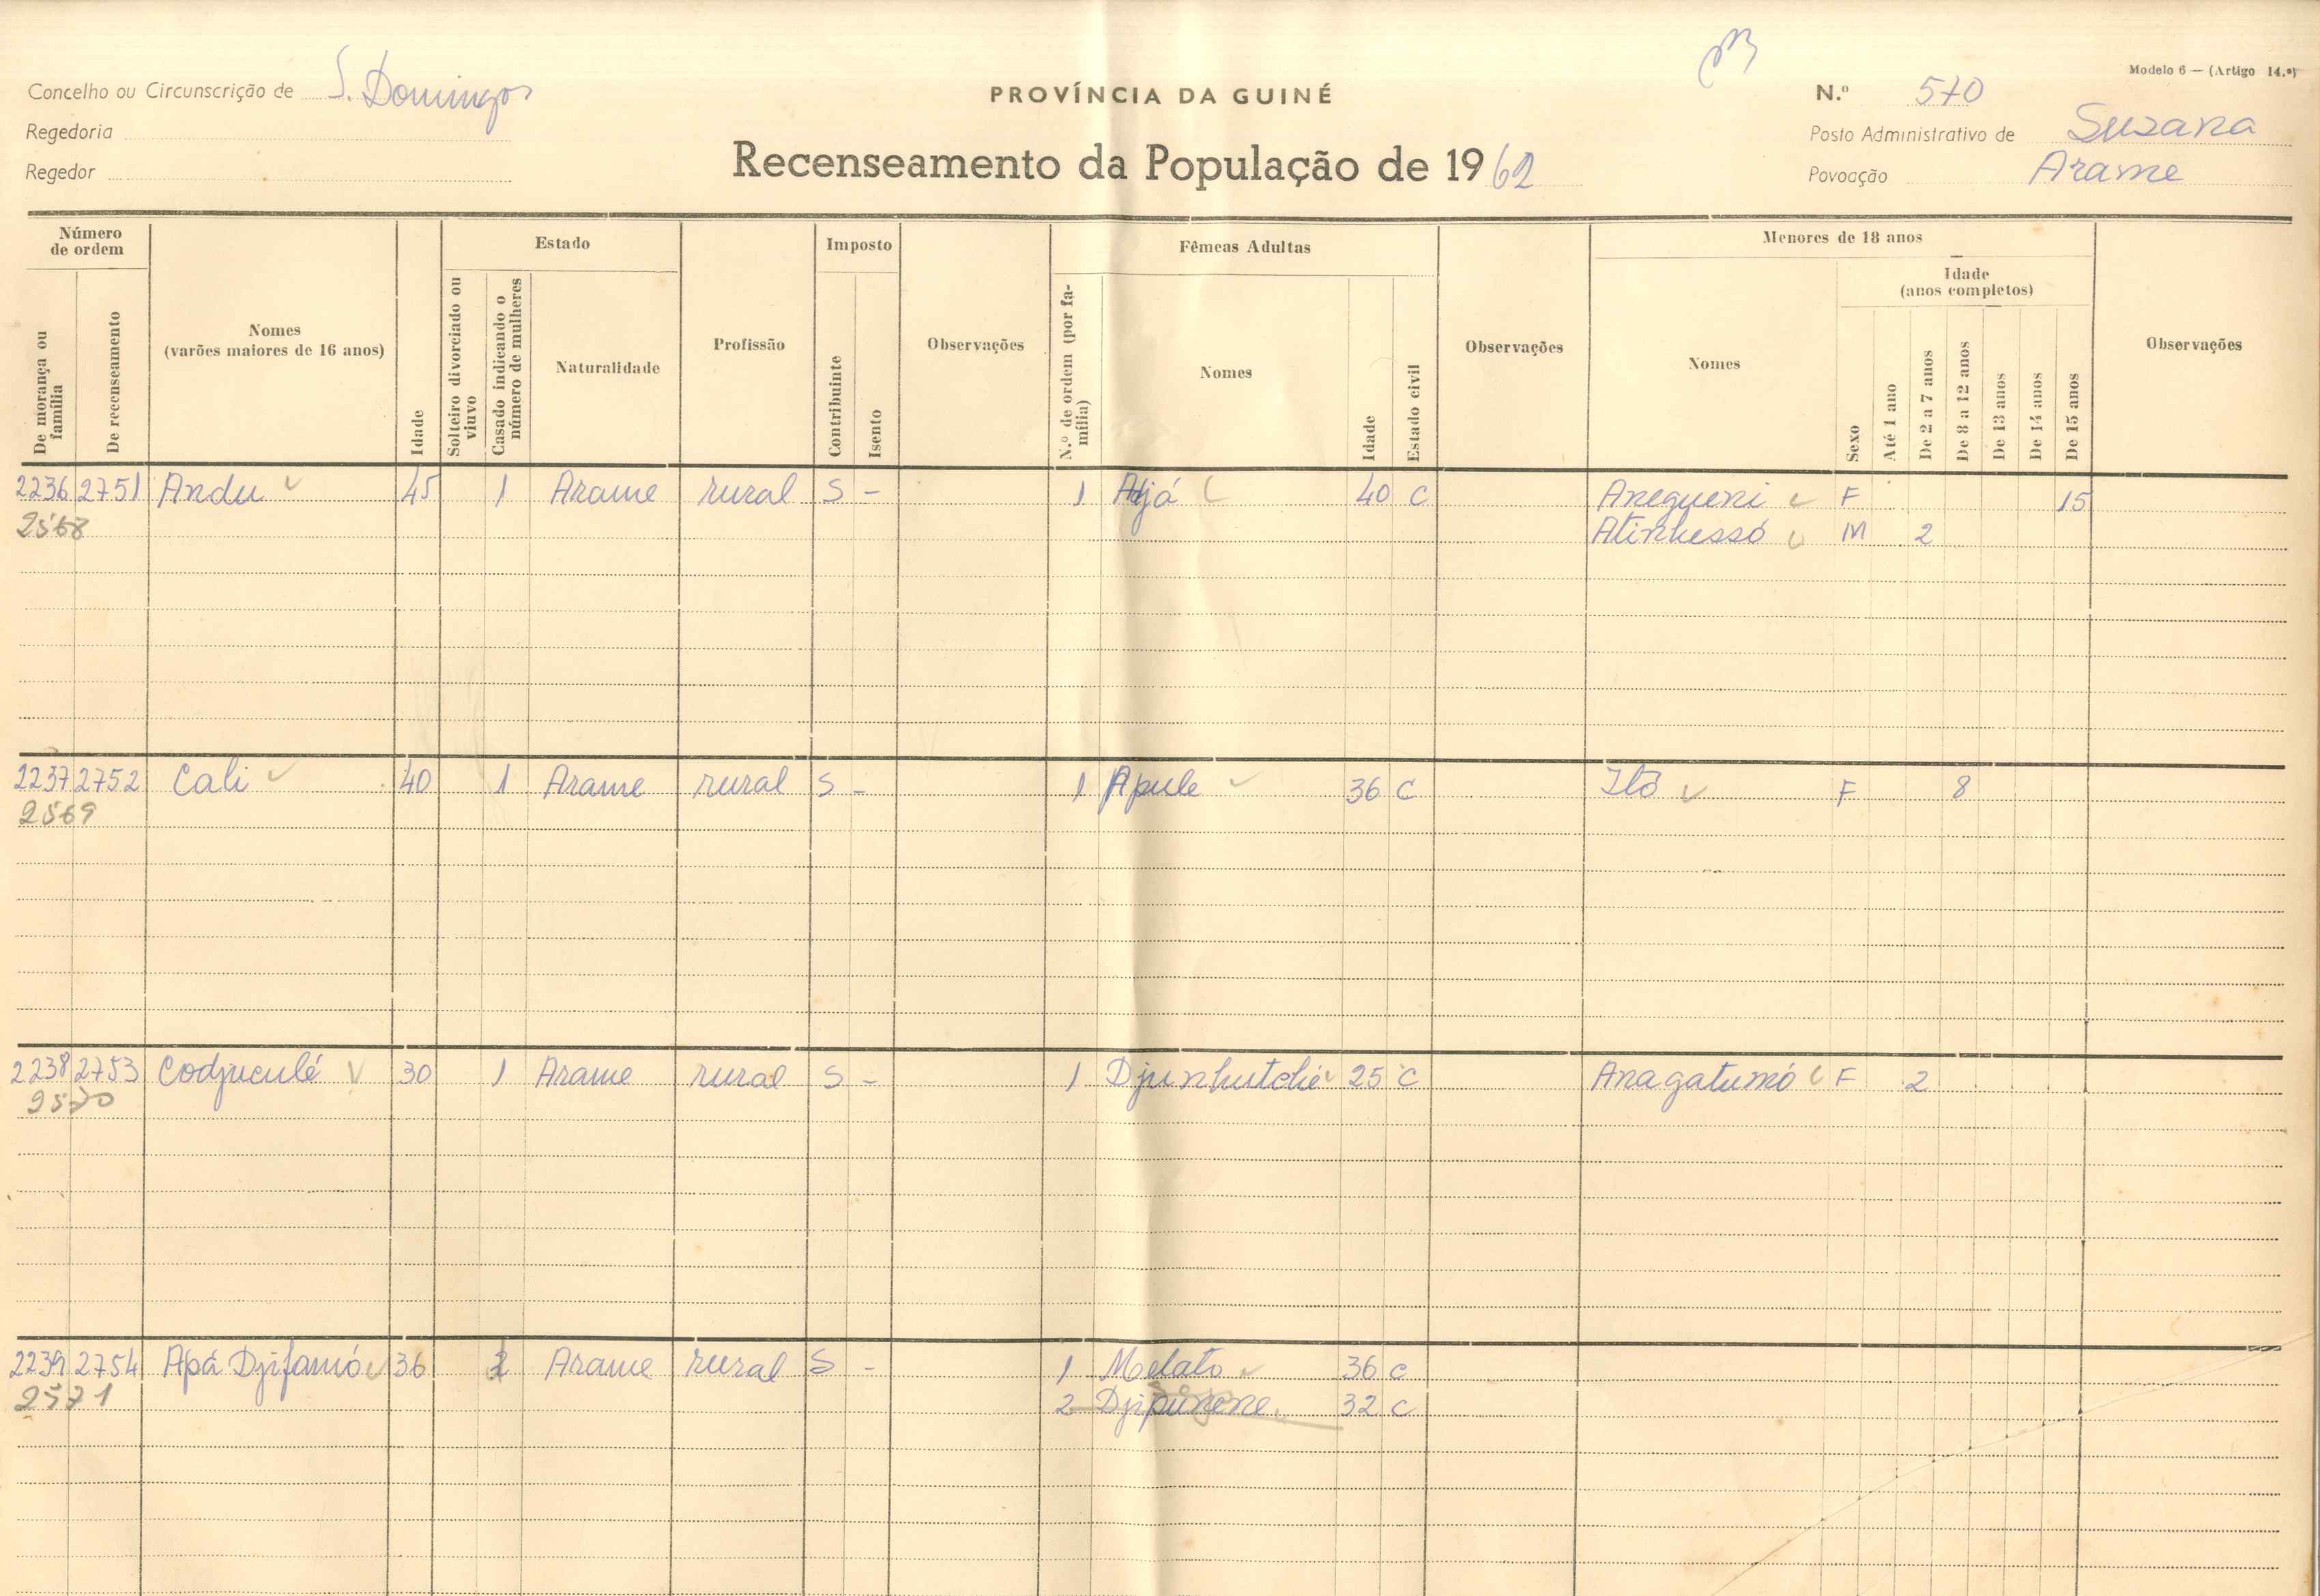 Modelo 6 — (Artigo 14.º)
Concelho ou Circunscrição de S. Domingos
PROVÍNCIA DA GUINÉ
N.º 570
Regedoria
Posto Administrativo de Suzana
Regedor
Recenseamento da População de 1962
Povoação Arame
Número de ordem
Estado
Imposto
Fêmeas Adultas
Menores de 18 anos
Idade
(anos completos)
De morança ou família
De recenseamento
Nomes
(varões maiores de 16 anos)
Idade
Solteiro divorciado ou viuvo
Casado indicando o número de mulheres
Naturalidade
Profissão
Contribuinte
Isento
Observações
N.º de ordem (por família)
Nomes
Idade
Estado civil
Observações
Nomes
Sexo
Até 1 ano
De 2 a 7 anos
De 8 a 12 anos
De 13 anos
De 14 anos
De 15 anos
Observações
2236 2751 Andu 45 1 Arame rural S - 1 Adjá 40 C Anegueni F 15
2568 Atinhessó M 2
2237 2752 Cali 40 1 Arame rural S - 1 Apule 36 C F 8
2569
2238 2753 Codjuculé 30 1 Arame rural S - 1 Djunhutché 25 C Anagatumó F 2
2570
2239 2754 Apá Djifamó 36 2 Arame rural S - 1 Melato 36 C
2571 2 Djipunene 32 C